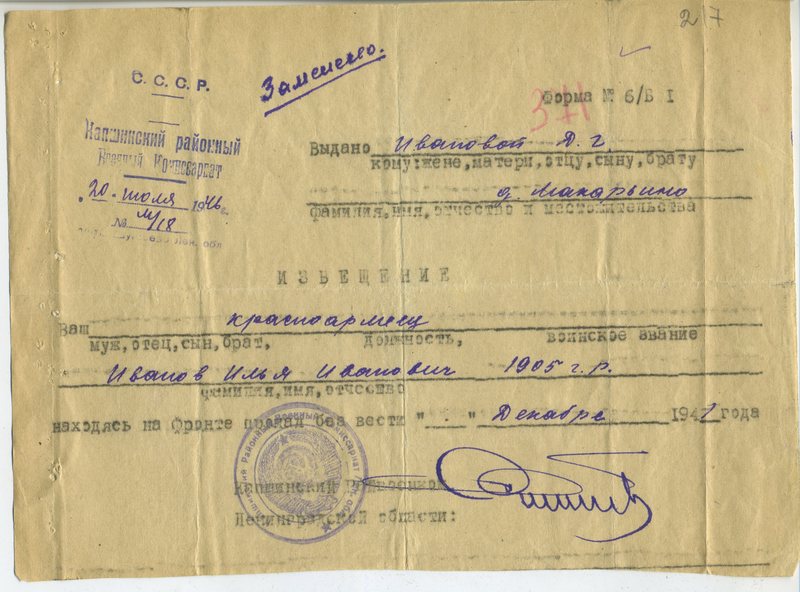 2 7
Заменено.
С. С. С. Р.
Форма № 6/Б I
371
Капшинский районный
Военный Комиссариат
Выдано Ивановой Д. Г
кому:жене,матери,отцу,сыну,брату
"20" июля 1946 г.
д. Макарьино
№ 4/18
фамилия,имя,отчество и местожительства
Лен. обл
ИЗВЕЩЕНИЕ
Ваш красноармеец
муж,отец,сын,брат, должность, воинское звание
Иванов Илья Иванович 1905 г. р.
фамилия,имя,отчество
находясь на фронте пропал без вести " " Декабре 1941 года
Капшинский Райвоенком
Ленинградской области: